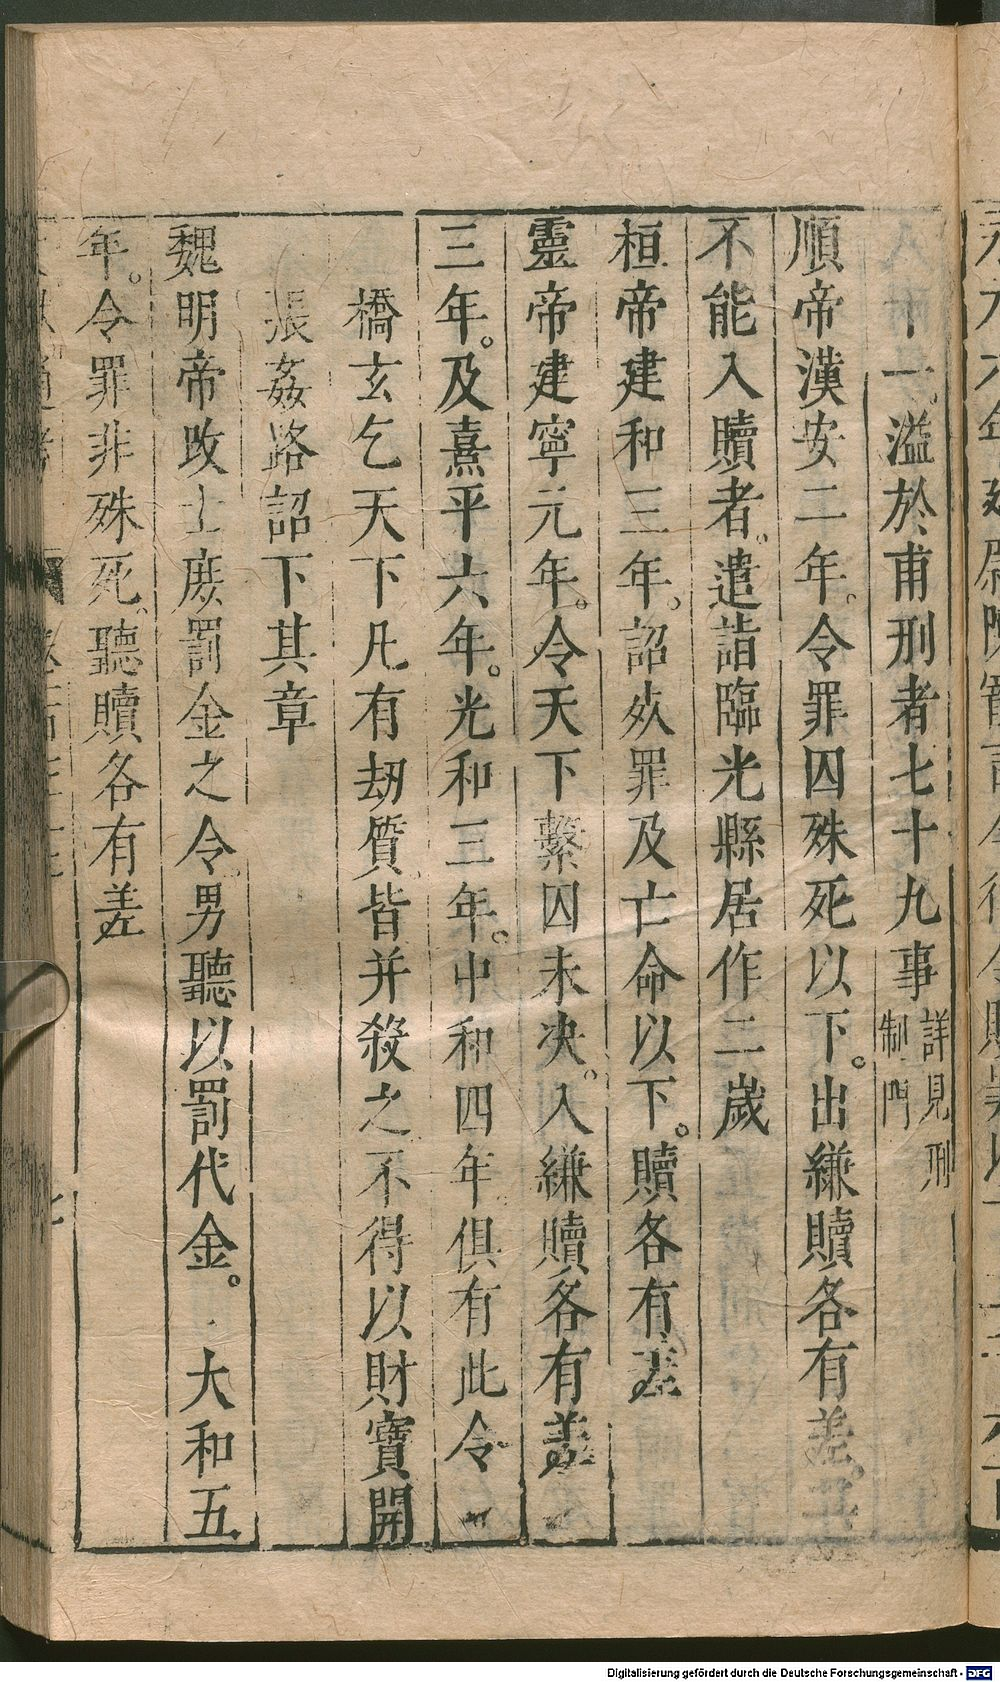 十一溢於甫刑者七十九事詳見刑制門
順帝漢安二年。令罪囚殊死以下。出縑贖各有差。其
不能入贖者。遣詣臨光縣居作二歲
桓帝建和三年。詔死罪及亡命以下。贖各有差
靈帝建寧元年。令天下繫囚未决。入縑贖各有差
三年。及熹平六年。光和三年。中和四年俱有此令
橋玄乞天下凡有劫質皆并殺之不得以財寶開
張姦路詔下其章
魏明帝改士庶罰金之令男聽以罰代金。大和五
年。令罪非殊死。聽贖各有差
Digitalisierung gefördert durch die Deutsche Forschungsgemeinschaft - DFG